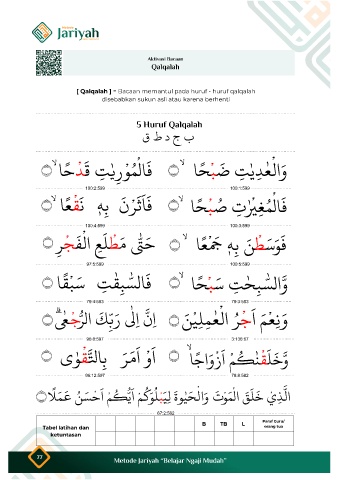 Jariyah
Aktivasi Bacaan
Qalqalah
[ Qalqalah ] = Bacaan memantul pada huruf - huruf qalqalah
disebabkan sukun asli atau karena berhenti
5 Huruf Qalqalah
ب ج د ط ق
وَالْعٰدِيٰتِ ضَبْحًا ۙ فَالْمُوْرِيٰتِ قَدْحًا ۙ
100:1:599 100:2:599
فَالْمُغِيْرٰتِ صُبْحًا ۙ فَاَثَرْنَ بِهٖ نَقْعًا ۙ
100:3:599 100:4:599
فَوَسَطْنَ بِهٖ جَمْعًا ۙ حَتّٰى مَطْلَعِ الْفَجْرِ
100:5:599 97:5:599
وَّالسّٰبِحٰتِ سَبْحًا ۙ فَالسّٰبِقٰتِ سَبْقًا
79:3:583 79:4:583
وَنِعْمَ اَجْرُ الْعٰمِلِيْنَ اِنَّ اِلٰى رَبِّكَ الرُّجْعٰى
3:136:67
وَّخَلَقْنٰكُمْ اَزْوَاجًا ۙ اَوْ اَمَرَ بِالتَّقْوٰى
78:8:582 96:12:597
الَّذِيْ خَلَقَ الْمَوْتَ وَالْحَيٰوةَ لِيَبْلُوَكُمْ اَيُّكُمْ اَحْسَنُ عَمَلًا
67:2:562
Tabel latihan dan ketuntasan B TB L Paraf Guru/
orang tua
77 Metode Jariyah "Belajar Ngaji Mudah"